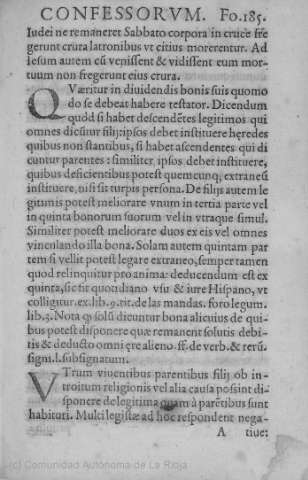 CONFESSORVM. Fo.185.
Iudei ne remaneret Sabbato corpora in cruce fre
gerunt crura latronibus vt citius morerentur. Ad
Iesum autem cũ venissent & vidissent eum mor-
tuum non fregerunt eius crura.
QVæritur in diuidendis bonis suis quomo
do se debeat habere testator. Dicendum
quòd si habet descendẽtes legitimos qui
omnes dicũtur filij: ipsos debet instituere hęredes
quibus non stantibus, si habet ascendentes qui di
cuntur parentes: similiter ipsos debet instituere,
quibus deficientibus potest quemcunq; extraneũ
instituere, nisi sit turpis persona. De filijs autem le
gitimis potest meliorare vnum in tertia parte vel
in quinta bonorum suorum vel in vtraque simul.
Similiter potest meliorare duos ex eis vel omnes
vinculando illa bona. Solam autem quintam par
tem si vellit potest legare extraneo, semper tamen
quod relinquitur pro anima: deducendum est ex
quinta, sic fit quotidiano vsu & iure Hispano, vt
colligitur. ex. lib. 9. tit. de las mandas. foro legum.
lib. 3. Nota q̃ solũ dicuntur bona alicuius de qui
bus potest disponere quæ remanent solutis debi-
tis & deducto omni ęre alieno. ff. de verb. & rerũ.
signi. l. subsignatum.
VTrum viuentibus parentibus filij ob in-
troitum religionis vel alia causa possint di-
sponere de legitima quam à parẽtibus sunt
habituri. Multi legistæ ad hoc respondent nega-
A tiue:
(c) Comunidad Autónoma de La Rioja